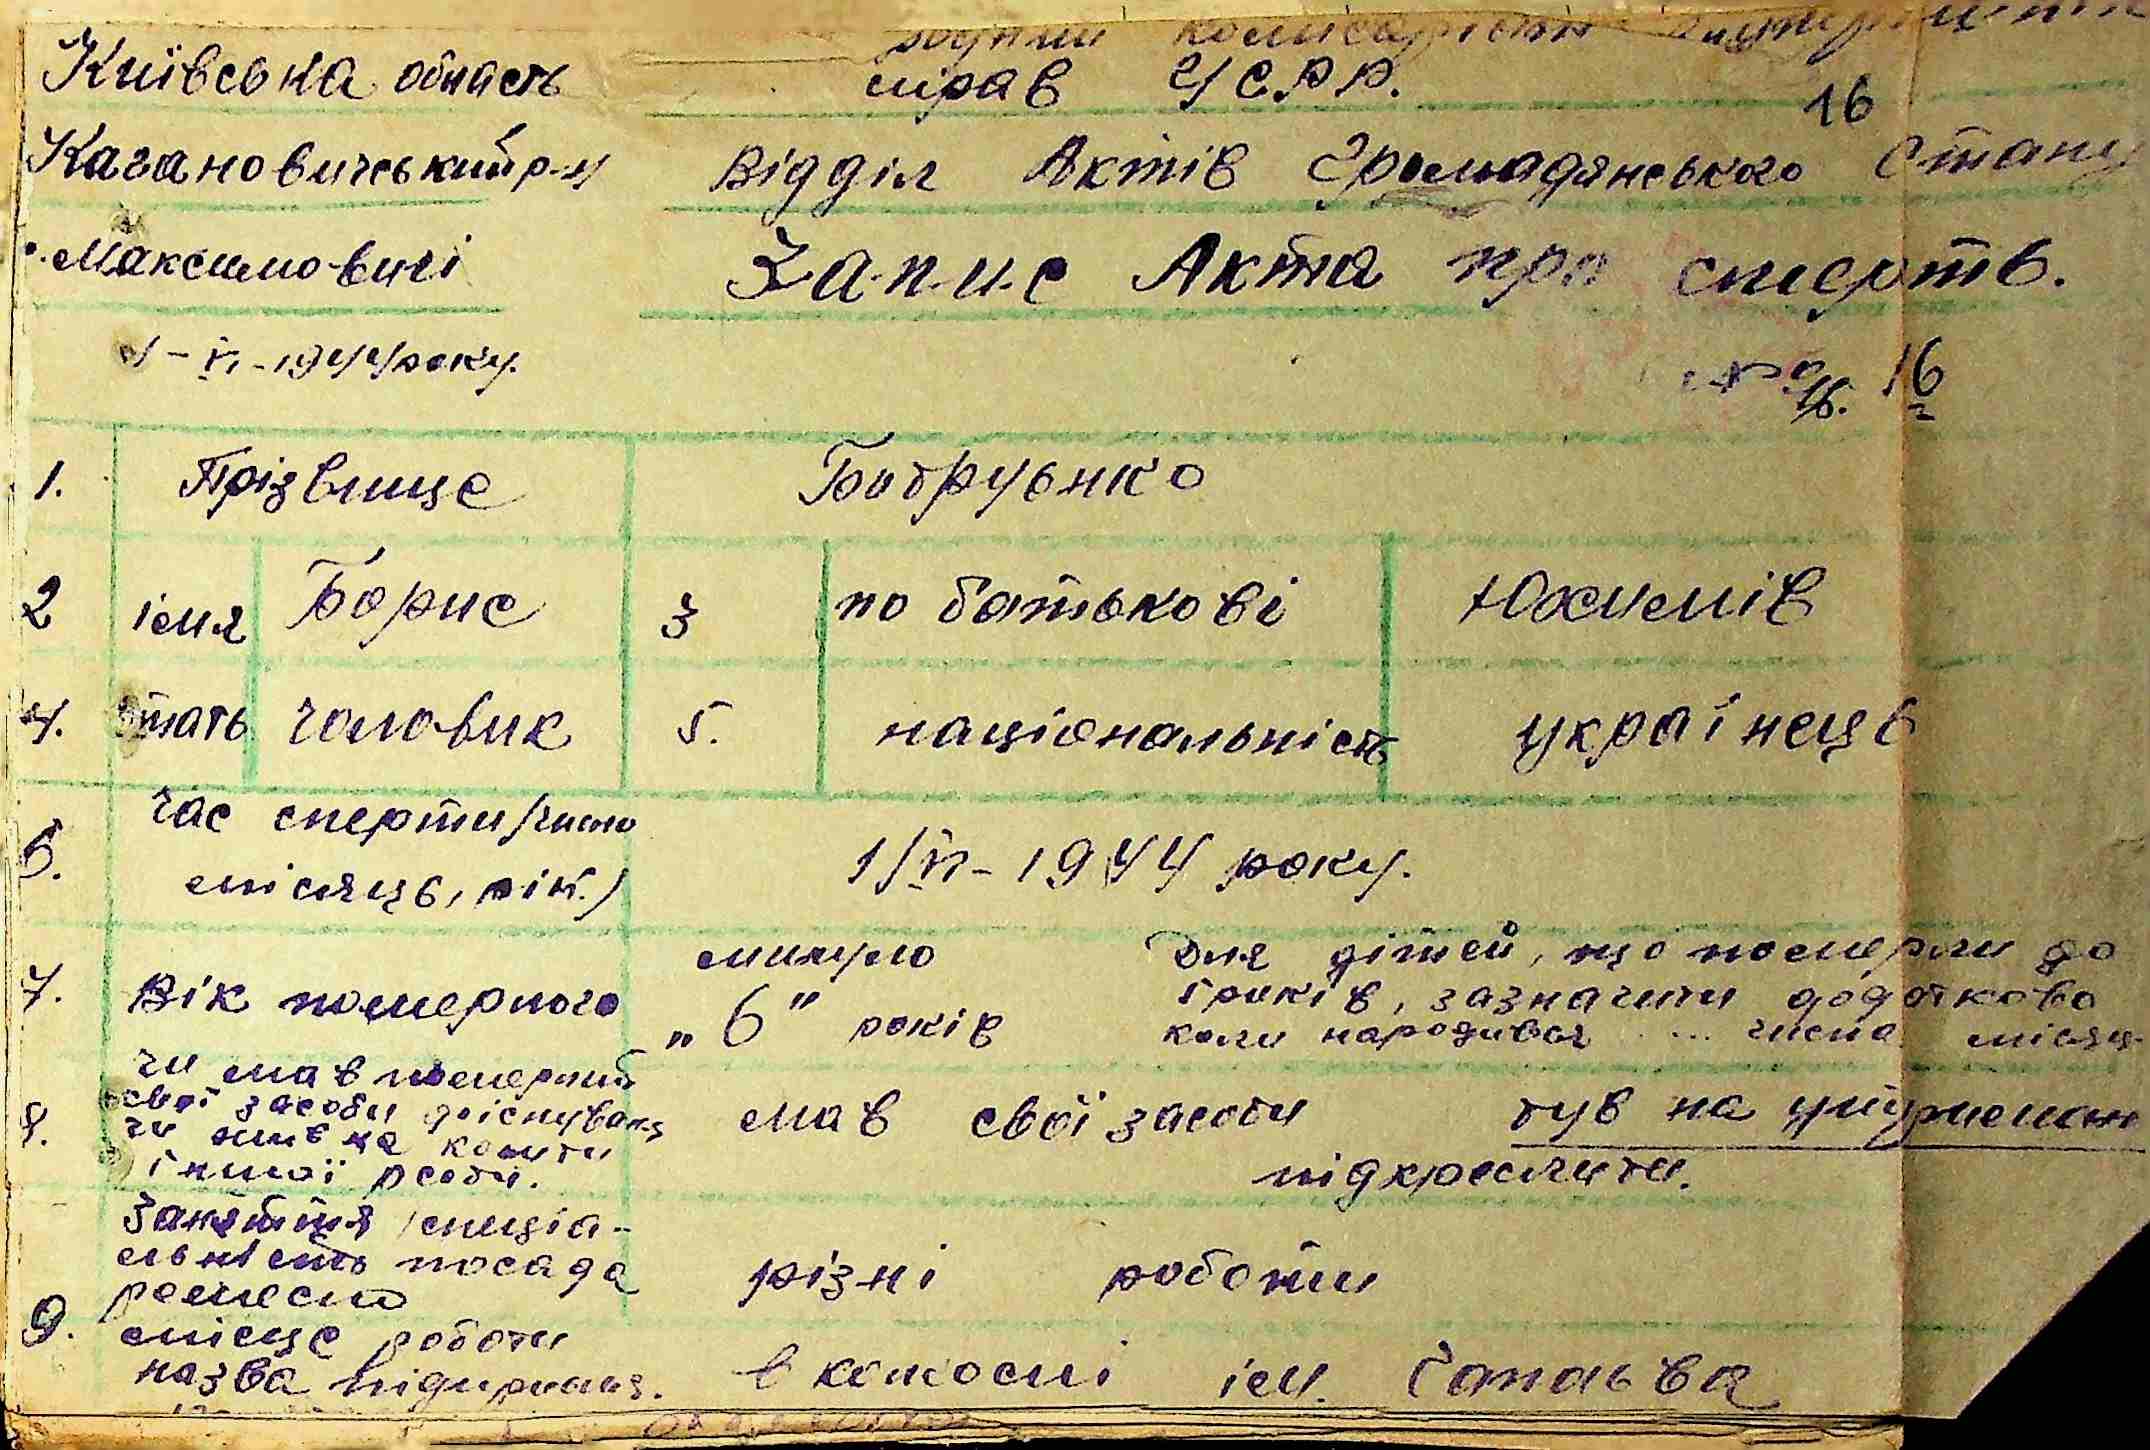 Київська область
справ УСРР.
16
Кагановичський р-н
Відділ Актів Громадянського Стану
Максимовичі
Запис Акта про смерть.
1-VI-1944 року.
16
1. Прізвище Бобруько
2 імя Борис 3 по батькові Юхимів
4. стать чоловик 5. національність українець
6. час смерти /число
місяць, рік./ 1/VI-1944 року.
7. Вік померлого минуло „6" років
Для дітей, що померли до
5 років, зазначити додатково
коли народився ... числа місяц
8. чи мав померлий
свої засоби до існуван
чи жив на кошти
іншої особи.
мав свої засоби був на утриман
підкреслити.
9. Заняття спеціа-
льність посада
ремесло
різні роботи
місце роботи
назва підприєм.
в колхозі ім. Чапаєва